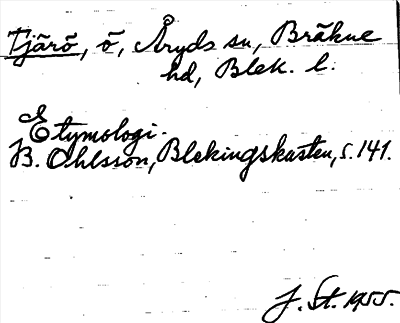 Tjärö, ö, Åryds sn, Bräkne
hd, Blek. l.
Etymologi.
B. Ohlsson, Blekingskusten, s. 141.
J. St. 1955.